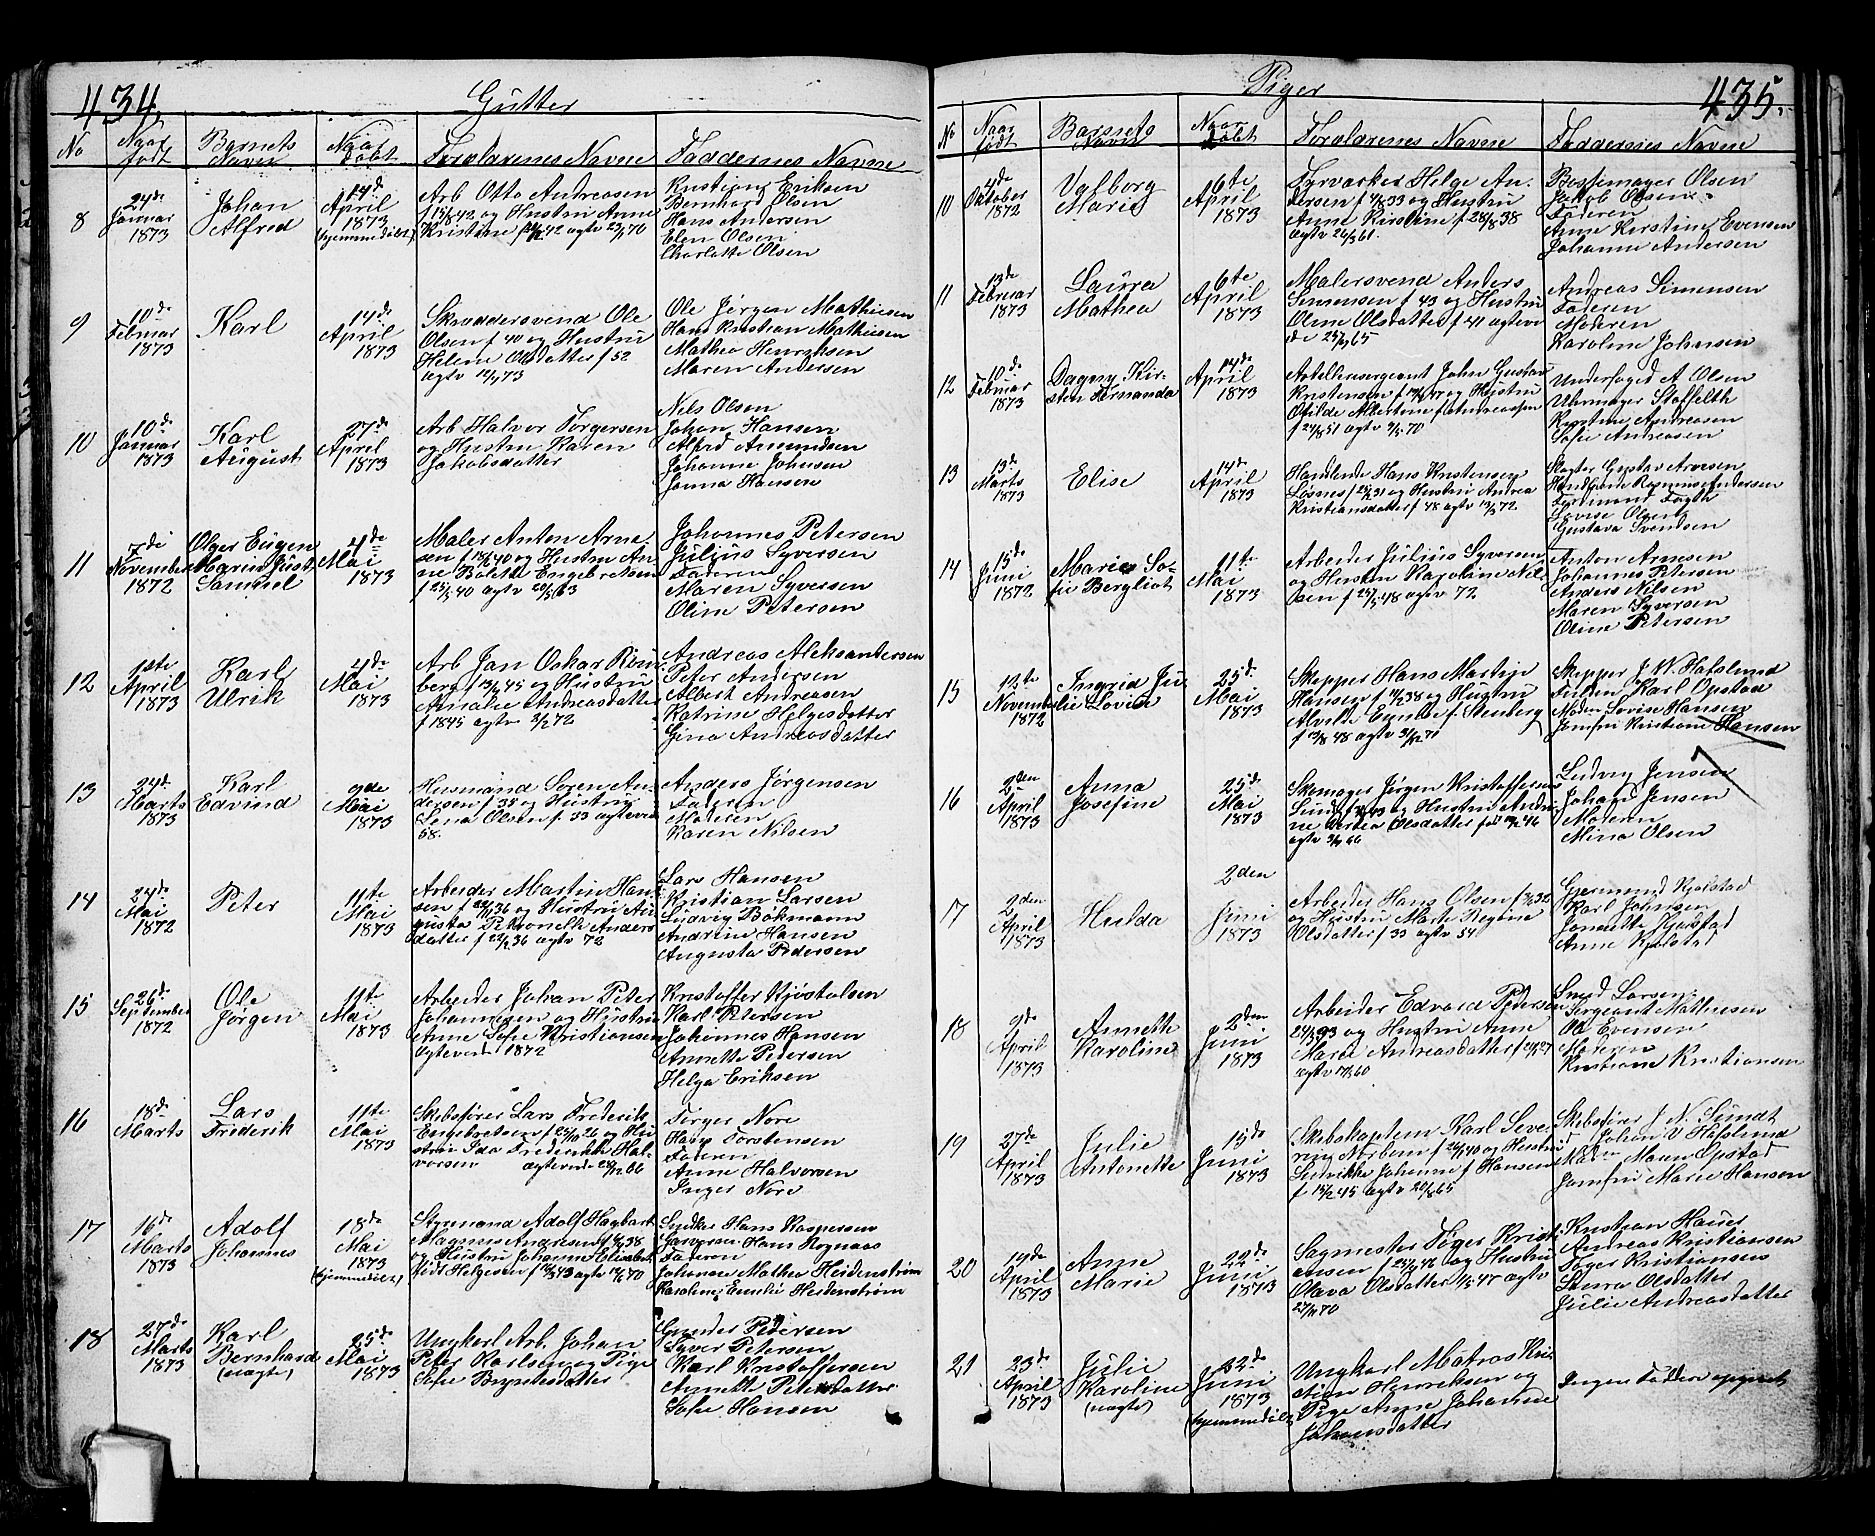 434.
Gutter
No
Naar født
Barnets Navn
Naar Døbt
Forældrenes Navne
Faddernes Navne
8
24de Januar 1873
Johan Alfred
14de April 1873 (hjemmedøbt)
Arb Otto Andreasen
f 15/8 42 og Hustru Anne
Kristine
42 agtv 23/1 70
Kristiane Eriksen
Bernhard Olsen
Hans Andersen
Elen Olsen
Charlotte Olsen
9
10de Februar 1873
Karl
14de April 1873
Skræddersvend Ole
Olsen f 40 og Hustru
Helene Olsdatter f 52
agtv 73
Ole Jørgen Mathiesen
Hans Kristian Mathiesen
Mathea Henriksen
Maren Andersen
10
10de Januar 1873
Karl August
27de April 1873
Arb Halvor Torgersen
og Hustru Karen
Jakobsdatter
Nils Olsen
Johan Hansen
Alfred Amundsen
Johanne Johnsen
Janna Hansen
11
7de November 1872
Olger Eugen
Marin Just
Samuel
4de Mai 1873
Maler Anton Arne-
sen f 40 og Hustru An-
ne Bolette Engebretsen
f 40 agtv 63
Johannes Petersen
Julius Syversen
Faderen
Maren Syversen
Oline Petersen
12
1ste April 1873
Karl Ulrik
4de Mai 1873
Arb Jan Oskar
berg f 45 og Hustru
Amalie Andreasdatter
f 1845 agtv 72
Andreas Aleksandersen
Peter Andersen
Albert Andreasen
Katrine Helgesdatter
Gina Andreasdatter
13
24de Marts 1873
Karl Edvind
9de Mai 1873
Husmand Søren An-
dersen f 35 og Hustru
Lena Olsen f 33 agtevie
58.
Anders Jørgensen
Faderen
Moderen
Karen Nilsen
14
24de Mai 1872
Peter
11te Mai 1873
Arbeider Martin Han-
sen f 36 og Hustru Au-
gusta Petronelle Anders-
datter f 36 agtv 72
Lars Hansen
Kristian Larsen
Ludvig Bökmann
Andrine Hansen
Augusta Pedersen
15
26de September 1872
Ole Jørgen
11te Mai 1873
Arbeider Johan Peter
Johannesen og Hustru
Anne Sofie Kristiansen
Agteviede 1872
Kristoffer Kjøstolsen
Karl Petersen
Johannes Hansen
Annette Pedersen
Helga Eriksen
16
18de Marts
Lars Frederik
11te Mai 1873
Skibsfører Lars Frederik
Engebretsen f 26 og Hu-
stru Ida Frederikke Hal-
vorsen agteviede 66
Torger Nore
Hans Torstensen
Faderen
Anne Halvorsen
Inger Nore
17
16de Marts 1873
Adolf Johannes
18de Mai 1873 (hjemmedøbt)
Styrmand Adolf Hagbart
Magnus Andresen f 38
og Hustru Johanne
Helgesen f 43 agtv 70
Hans Kaspersen
Hans Rognaas
Faderen
Johanne Mathea Heidenstrøm
Karoline Emilie Heidenstrøm
18
27de Marts 1873
Karl Bernhard (uagte)
25de Mai 1873
Ungkarl Arb. Johan
Peter Karlsen og Pige
Sofie Brynhelsdatter
Gunder Pedersen
Syver Petersen
Karl Kristoffersen
Annette Petersdatter
Sofie Hansen
435.
Piger
No
Naar født
Barnets Navn
Naar Døbt
Forældrenes Navne
Faddernes Navne
10
4de Oktober 1872
Valborg Marie
6te April 1873
Fyrvarker Helge An-
dersen f 4/8 33 og Hustru
Anne Kirstine f 28/8 38
agtv 26/3 61.
Bestemager Olsen
Jakob Olsen
Faderen
Anne Kirstine Evensen
Johanne Andersen
11
13de Februar 1873
Laura Mathea
6te April 1873
Malersvend Anders
Simensen f 43 og Hustru
Oline Olsdatter f 41 agtvie
de 65
Andreas Simensen
Faderen
Moderen
Karoline Johnsen
12
10de Februar 1873
Dagny Kir-
sten Fernanda
14de April 1873
Artillerisergeant John Gustav
Kristensen f 47 og Hustru
Otilde Albertine f Andreassen
f 24/8 51 agtv 70
Underfoged A Olsen
Uhrmager Staffeldt
Kirstine Andreasen
Sofie Andreasen
13
13de Marts 1873
Elise
14de April 1873
Handlende Hans Kristensen
Løsnes f 31 og Hustru Andrea
Kristiansdatter f 48 agtv 72
Slagter Gustav Arvesen
Handlende Rasmus Andersen
Ferdinand Fagth
Lovise Olsen
Gustava Svendsen
14
15de Juni 1872
Marie So-
fie Bergliot
11te Mai 1873
Arbeider Julius Syversen
og Hustru Karoline Nil-
sen f 25/5 48 agtv 72
Anton Arnesen
Johannes Petersen
Anders Nilsen
Maren Syversen
Oline Petersen
15
12te November 1872
Ingrid Ju-
lie Lovise
25de Mai 1873
Skipper Hans Martin
Hansen f 38 og Hustru
Alvilde Emilie f. Stenberg
f 13/8 48 agtv 71
Skipper J. W. Hafslund
Karl Opstad
Lovise Hansen
Jomfru Kristiane Hansen
16
2den April 1873
Anna Josefine
25de Mai 1873
Skomager Jørgen Kristoffersen
Lund f 43 og Hustru Andri-
ne Bertea Olsdatter født 46
agtv 66
Ludvig Jensen
Johan Jensen
Moderen
Mina Olsen
17
2den April 1873
Hulda
2den Juni 1873
Arbeider Hans Olsen f 32
og Hustru Marte Regine
Olsdatter f 33 agtv 54
Gjermund Kjølstad
Karl Johnsen
Jonette Kjølstad
Anne Kjølstad
18
9de April 1873
Annette Karoline
2den Juni 1873
Arbeider Edvard Pedersen
og Hustru Anne
Marie Andreasdatter f 27
agtv 60
Smed Larsen
Sergeant Mathiesen
Ole Evensen
Moderen
Kristiane Kristiansen
19
27de April 1873
Julie Antonette
15de Juni 1873
Skibskaptein Karl Seve-
rin f 40 og Hustru
Ludvikke Johanne f Hansen
f 15/2 45 agtv 20/8 65
Skibsfører J N. Sundt
Johan V Hafslund
Maren Opstad
Jomfru Marie Hansen
20
14de April 1873
Anne Marie
22de Juni 1873
Sagmester Tøger Kristi-
ansen f 46 og Hustru
Olava Olsdatter f 47 agtv
70
Kristian Hauer
Andreas Kristiansen
Tøger Kristiansen
Laura Olsdatter
Julie Andreasdatter
21
23de April 1873
Julie Karoline (uagte)
22de Juni 1873 (hjemmedøbt)
Ungkarl Matros Kri-
stian Henriksen og
Pige Anne Johanne
Johansdatter
Ingen Faddere opgivet